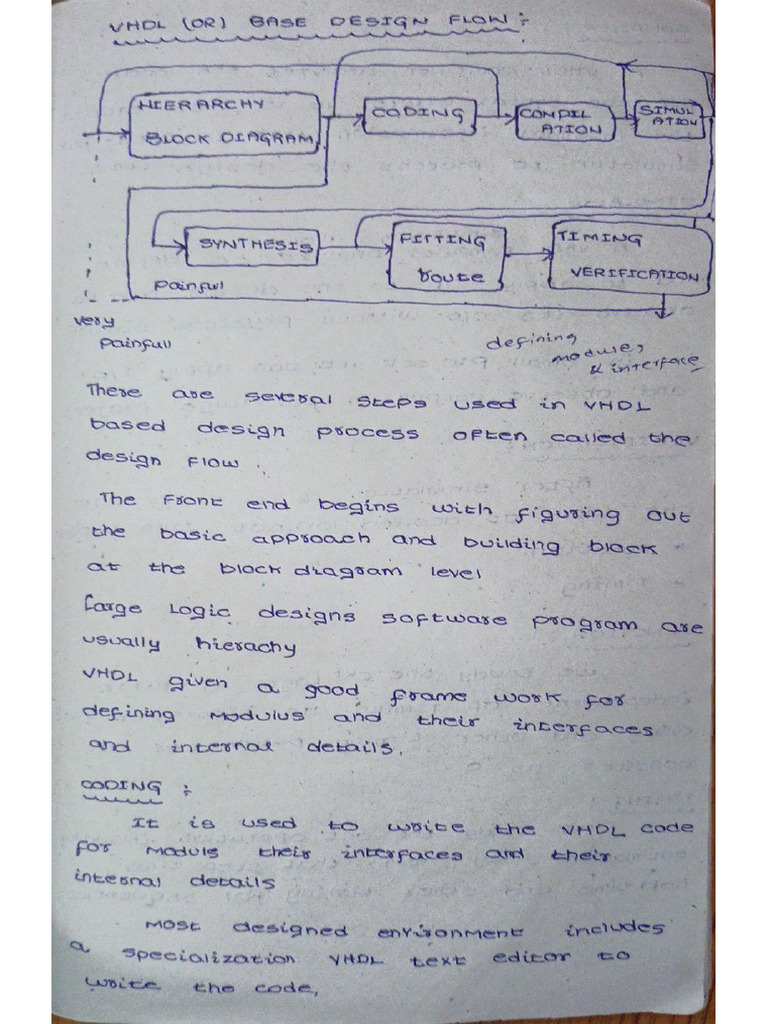 VHDL (OR) BASE DESIGN FLOW :
HIERARCHY
BLOCK DIAGRAM
CODING
COMPIL
ATION
SIMUL
ATION
SYNTHESIS
FITTING
route
TIMING
VERIFICATION
Painfull
very
Painfull
defining
module,
& interface
There are several steps used in VHDL
based design process often called the
design flow.
The front end begins with figuring out
the basic approach and building block
at the block diagram level
Large Logic designs software program are
usually hierachy
VHDL given a good frame work for
defining Modulus and their interfaces
and internal details.
CODING :
It is used to write the VHDL code
for Moduls their interfaces and their
internal details
Most designed environment includes
a specialization VHDL text editor to
write the code,